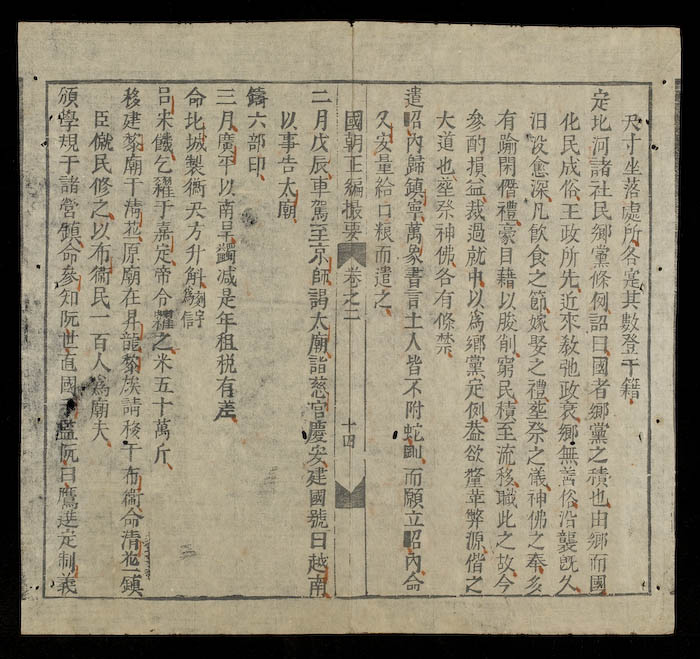 尺寸坐落處所各寔其數登于籍
定北河諸社民鄉黨條例詔曰國者鄉黨之積也由鄉而國
化民成俗王政所先近來敎弛政衰鄉無善俗沿襲旣久
汨沒愈深凡飲食之節嫁娶之禮塟祭之儀神佛之奉多
有踰閑僭禮豪目藉以朘削窮民積至流移職此之故今
參酌損益裁過就中以爲鄉黨定例葢欲釐革弊源偕之
大道也塟祭神佛各有條禁
遣昭內歸鎭寧萬象書言土人皆不附蛇刪而願立昭內命
又安量給口粮而遣之
國朝正編撮要 卷之二 十四
二月戊辰車駕至京師謁太廟詣慈宮慶安建國號曰越南
以事告太廟
鑄六部印
三月廣平以南旱蠲减是年租稅有差
命北城製衡尺方升斛刻字爲信
呂宋饑乞糴于嘉定帝令糶之米五十萬斤
移建黎廟于清花原廟在昇龍黎族請移于布衛命清花一鎭
臣僦民修之以布衛民一百人爲廟夫
頒學規于諸營鎭命參知阮世直國子監阮曰鷹選定制義